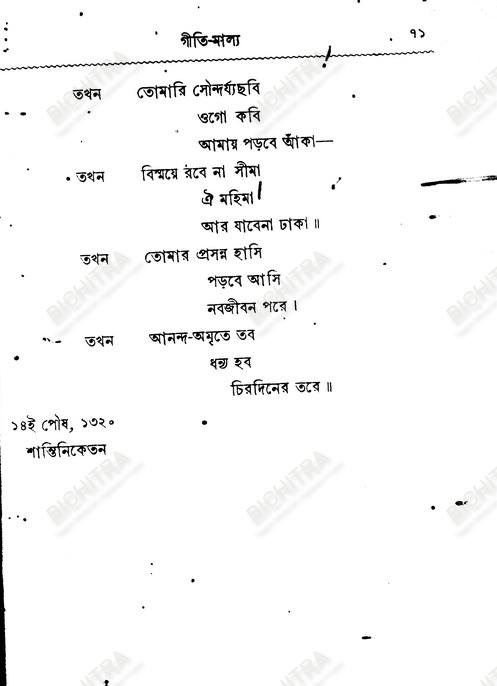 গীতি-মাল্য ৭১
তখন তোমারি সৌন্দর্য্যছবি
ওগো কবি
আমায় পড়বে আঁকা—
তখন বিস্ময়ে রবে না সীমা
ঐ মহিমা
আর যাবেনা ঢাকা ॥
তখন তোমার প্রসন্ন হাসি
পড়বে আসি
নবজীবন পরে ।
তখন আনন্দ-অমৃতে তব
ধন্য হব
চিরদিনের তরে ॥
১৪ই পৌষ, ১৩২০
শান্তিনিকেতন
BICHITRA
BICHITRA
BICHITRA
BICHITRA
BICHITRA
BICHITRA
BICHITRA
BICHITRA
BICHITRA
BICHITRA
BICHITRA
BICHITRA